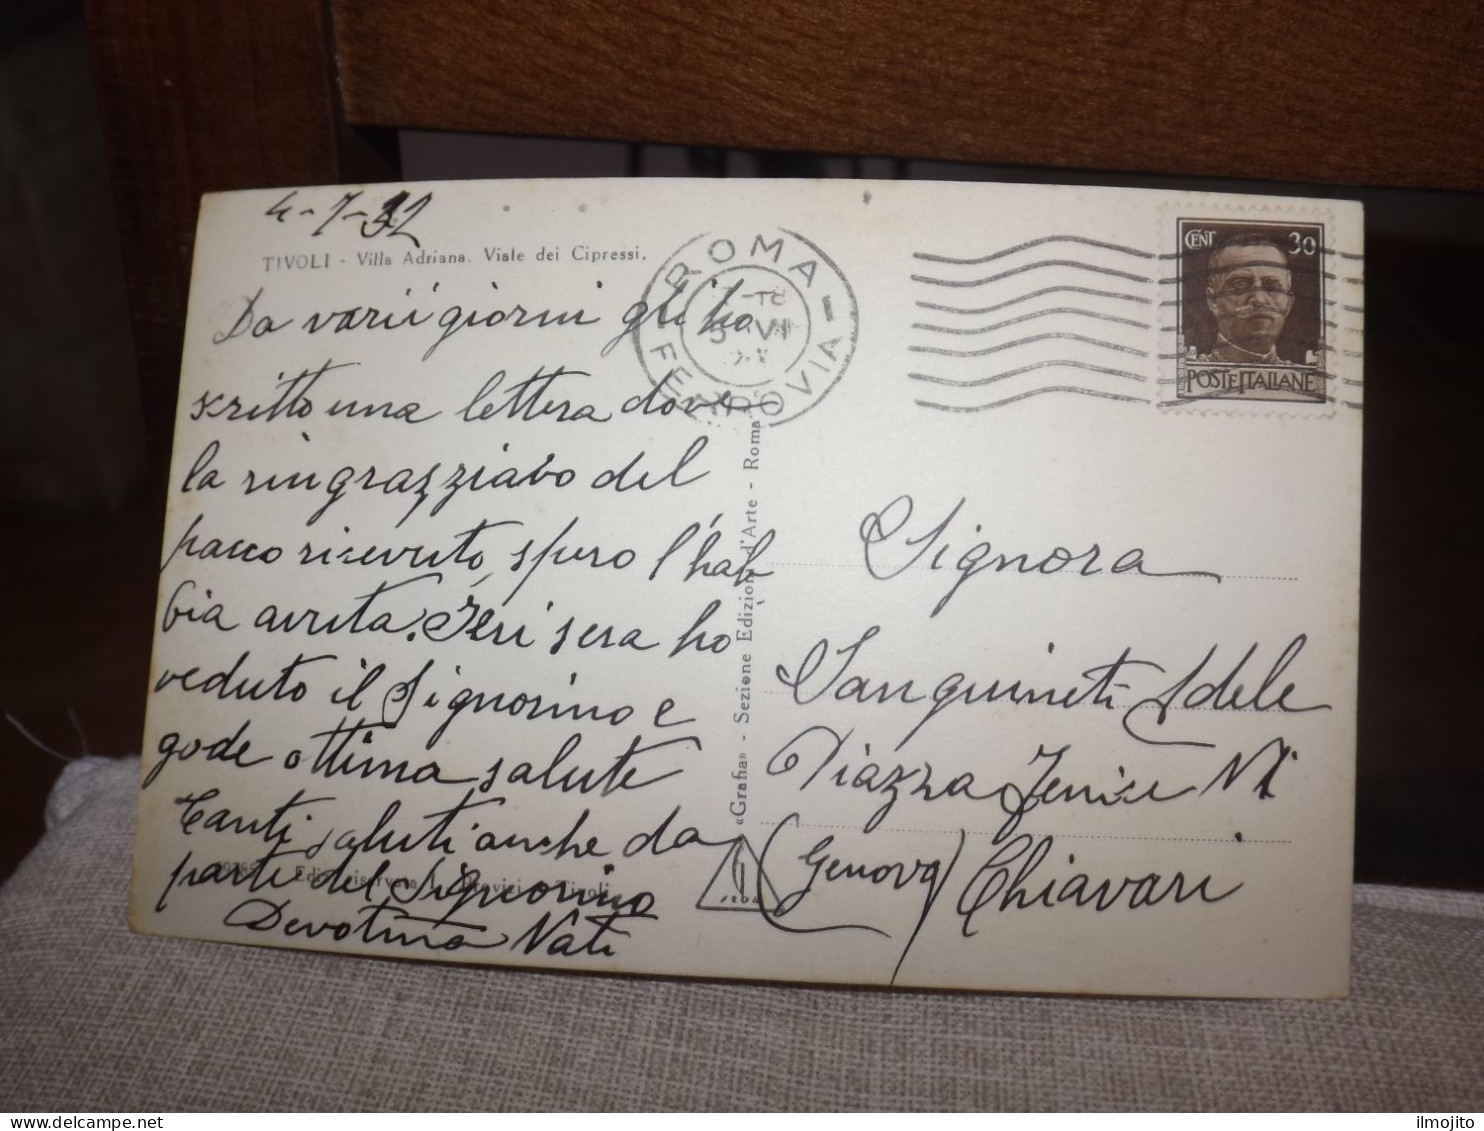 4-7-32
TIVOLI - Villa Adriana. Viale dei Cipressi.
Da varii giorni gli ho
scritto una lettera dove
la ringrazziavo del
pacco ricevuto, spero l'hab
bia avuta. Ieri sera ho
veduto il Signorino e
gode ottima salute
Tanti saluti anche da
parte del Signorino
Devotma Nati
Ediz. riservata
Tivoli
«Grafia» - Sezione Edizioni d'Arte - Roma
ROMA - FERROVIA -
CENT 30
POSTE ITALIANE
Signora
Sanguineti Adele
Piazza Fenice
(Genova) Chiavari
ilmojito